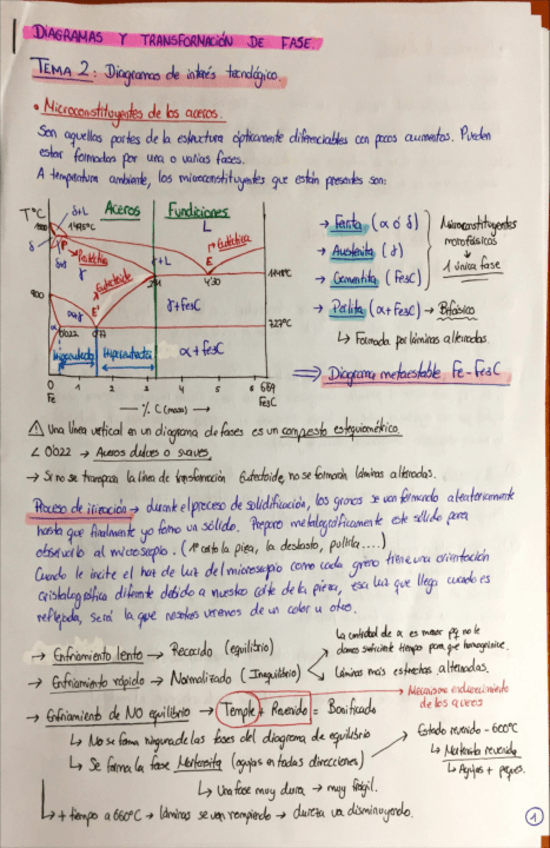 DIAGRAMAS Y TRANSFORMACIÓN DE FASE.
TEMA 2: Diagramas de interés tecnológico.
• Microconstituyentes de los aceros.
Son aquellas partes de la estructura ópticamente diferenciables con pocos aumentos. Pueden
estar formados por una o varias fases.
A temperatura ambiente, los microconstituyentes que están presentes son:
T°C
δ+L
Aceros
Fundiciones
L
1495°C
δ
P
Peritéctica
Eutéctica
E
γ
γ+L
Eutectoide
2'11
4'30
1148°C
900
α+γ
E'
γ+Fe3C
α
0'022
0'77
727°C
Hipoeutect.
Hipereutect.
α+Fe3C
0 1 2 3 4 5 6 6'69
Fe
Fe3C
— % C (masa) →
→ Ferrita (α ó δ)
→ Austenita (γ)
→ Cementita (Fe3C)
→ Perlita (α+Fe3C) → Bifásico
↳ Formada por láminas alternadas.
Microconstituyentes
monofásicos
↓
1 única fase
⇒ Diagrama metaestable Fe-Fe3C
⚠ Una línea vertical en un diagrama de fases es un compuesto estequiométrico.
< 0'022 → Aceros dulces o suaves.
→ Si no se traspasa la línea de transformación Eutectoide, no se formarán láminas alternadas.
Proceso de → durante el proceso de solidificación, los granos se van formando aleatoriamente
hasta que finalmente yo formo un sólido. Preparo metalográficamente este sólido para
observarlo al microscopio. (1º corto la pieza, la desbasto, pulirla....)
Cuando le incite el haz de luz del microscopio como cada grano tiene una orientación
cristalográfica diferente debido a nuestro corte de la pieza, esa luz que llega cuando es
reflejada, será la que nosotros veremos de un color u otro.
→ Enfriamiento lento → Recocido (equilibrio)
→ Enfriamiento rápido → Normalizado (Inequilibrio)
La cantidad de α es menor pq no le
damos suficiente tiempo para que homogenice.
Láminas más estrechas alternadas.
→ Enfriamiento de NO equilibrio → Temple + Revenido = Bonificado
→ Mecanismo endurecimiento
de los aceros
↳ No se forma ninguna de las fases del diagrama de equilibrio
↳ Se forma la fase Martensita (agujas en todas direcciones)
Estado revenido - 600°C
↳ Martensita revenida
↳ Agujas + peques.
↳ Una fase muy dura → muy frágil.
↳ + tiempo a 660°C → láminas se van rompiendo → dureza va disminuyendo.
1